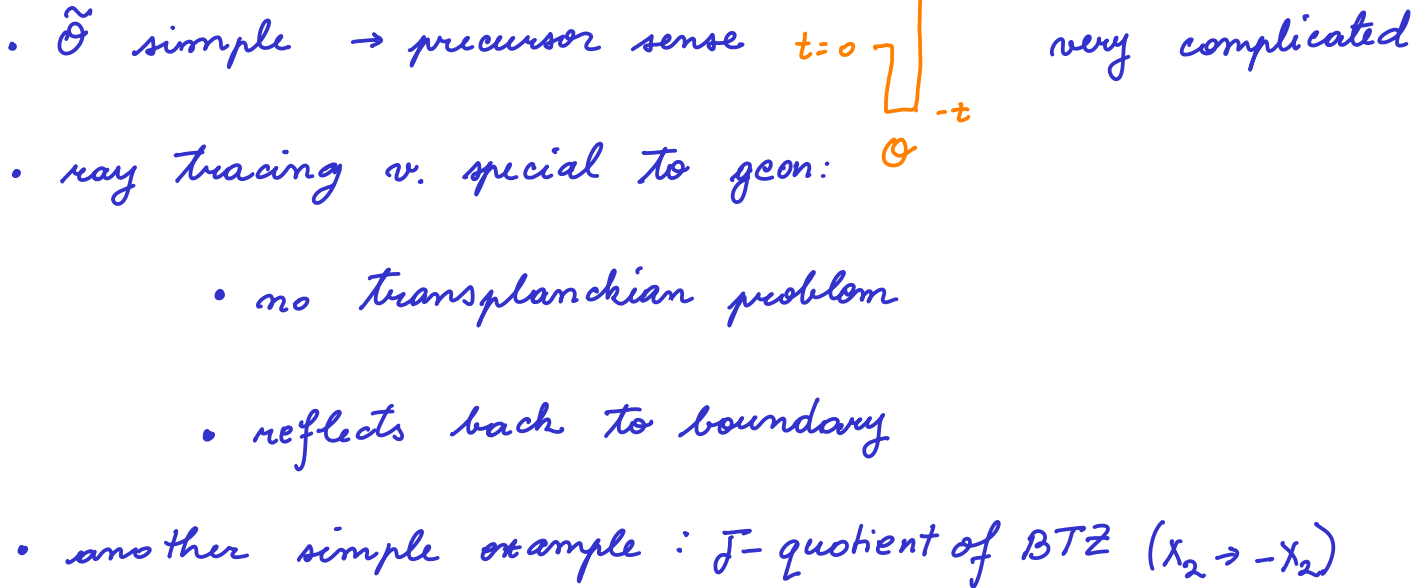 • Õ simple → precursor sense t=0 -t O very complicated
• ray tracing v. special to geon:
• no transplanckian problem
• reflects back to boundary
• another simple example : J- quotient of BTZ (X₂ → -X₂)